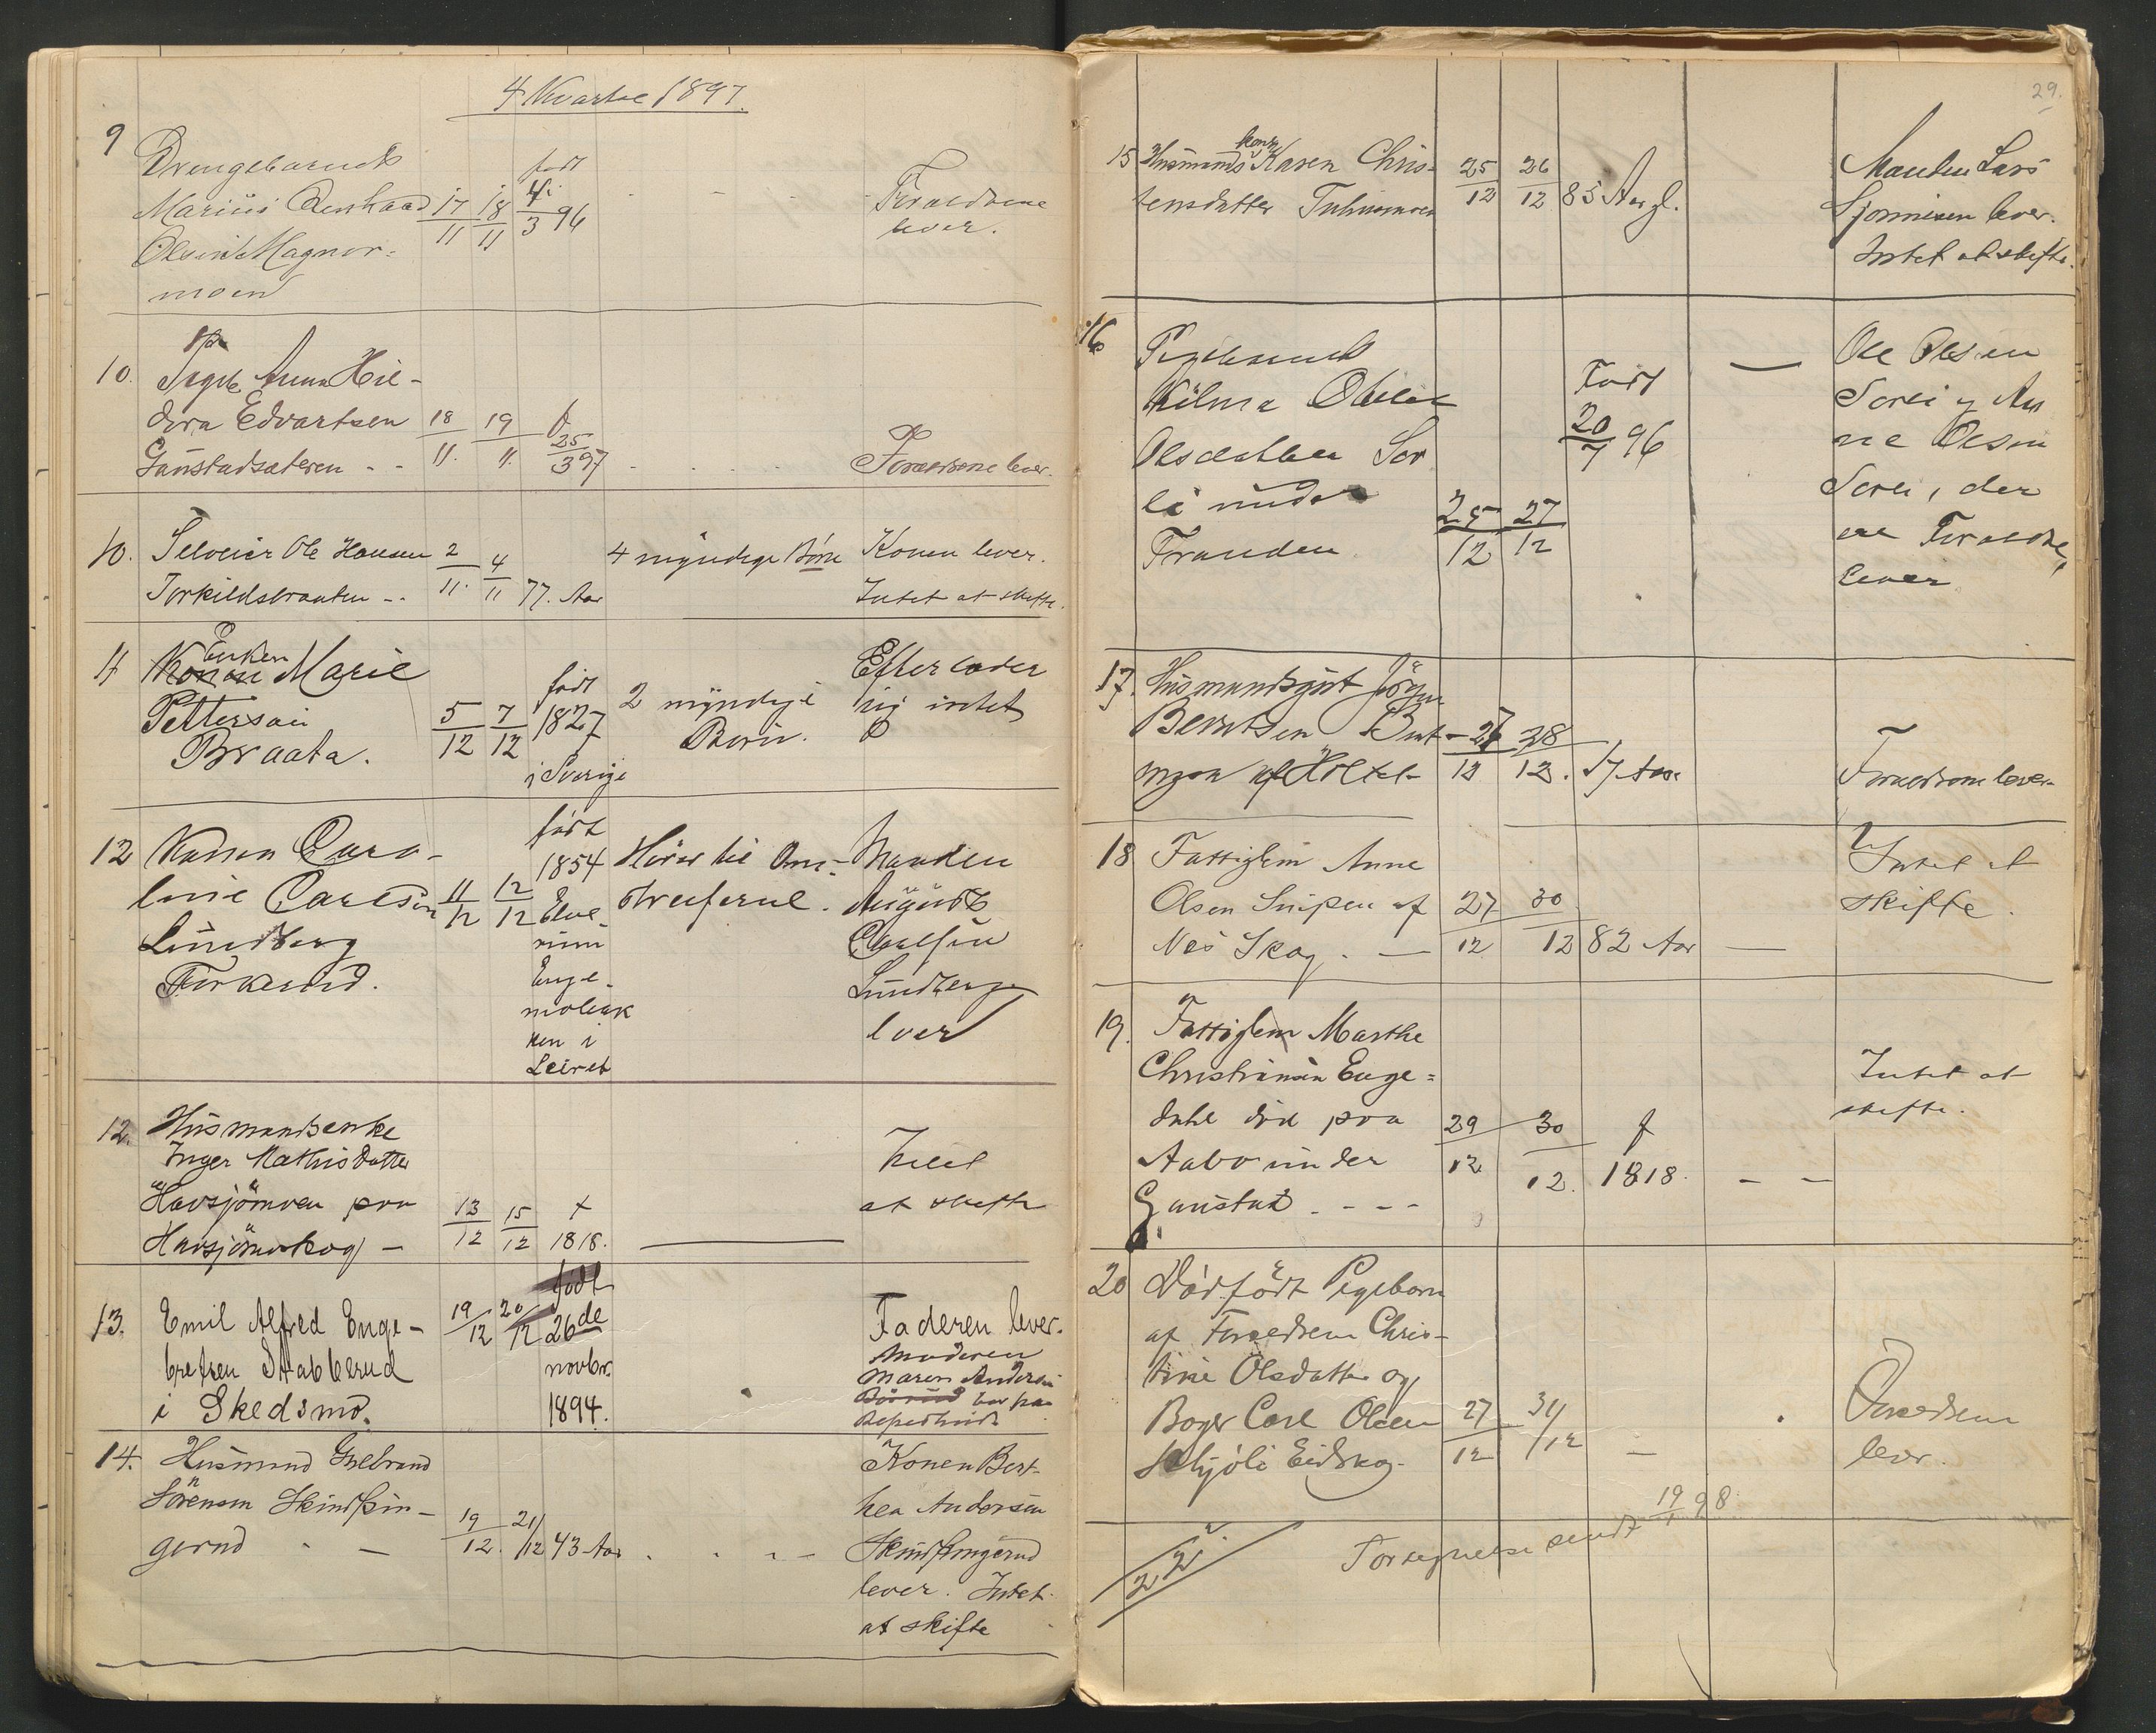 4 Kvartal 1897.
9
Drengebarnet
Marius
Olsen Magnor-
moen
17/11 18/11
født 4/3 96
Forældrene
lever.
10.
Pigeb. Anna Hil-
dora Edvartsen
Gaustadsæteren - -
18/11. 19/11.
f 25/3 97
Forældrene lever.
10. Selveier Ole Hansen
Torkildsbraaten - -
2/11. 4/11 77. Aar
4 myndige Børn
Konen lever.
Intet at skifte.
11 Konen Enken Marie
Petterson
Braata.
5/12 7/12
født
1827
i Sverige
2 myndige
Børn.
Efterlader
sig intet
12 Konen Caro-
line Carlson
Lundberg
11/12 12/12
født
1854
i
Leiret
Hører til Om-
streiferne.
Manden
August
Carlsen
Lundberg
lever
12. Husmandsenke
Inger Mathisdatter
Havsjømoen paa
Havsjømoskog -
13/12 15/12
f
1818.
Intet
at skifte
13. Emil Alfred Enge-
bretsen Stabberud
i Skedsmo.
19/12 20/12
født
26de
novbr.
1894.
Faderen lever.
Moderen
Maren Andersen
14. Husmand Gulbrand
Sörensen
gerud - -
19/12. 21/12 43 Aar
Konen Bert-
hea Andersen
lever. Intet
at skifte
29.
15 Husmands kone Karen Chris-
tensdatter
25/12 26/12 85 Aar gl.
Manden Lars
lever.
Intet at skifte.
16
Pigebarnet
Hilma Otelie
Olsdatter Sor
li under
Tranden
25/12 27/12
Født
20/7 96
—
Ole Olsen
Sorli og An
ne Olsen
Sorli, der
er Forældre,
lever
17. Husmandsgut Jörgen
Berntsen
af
27/12 28/12. 17 Aar
Forældrene lever.
18 Fattiglem Anne
Olsen Snipen af
Nes Skog. —
27/12 30/12 82 Aar —
Intet at
skifte.
19. Fattiglem Marthe
Christiansen Enge-
dahl död paa
Aabo under
Gaustad - - - -
29/12 30/12.
f
1818. - -
Intet at
skifte.
20 Dødfødt Pigebarn
af Forældrene Chris-
tine Olsdatter og
Carl Olsen
Skjöli Eidskog.
27/12 31/12 —
Forældrene
lever.
22.
Fortegnelse sendt 19/1 98.